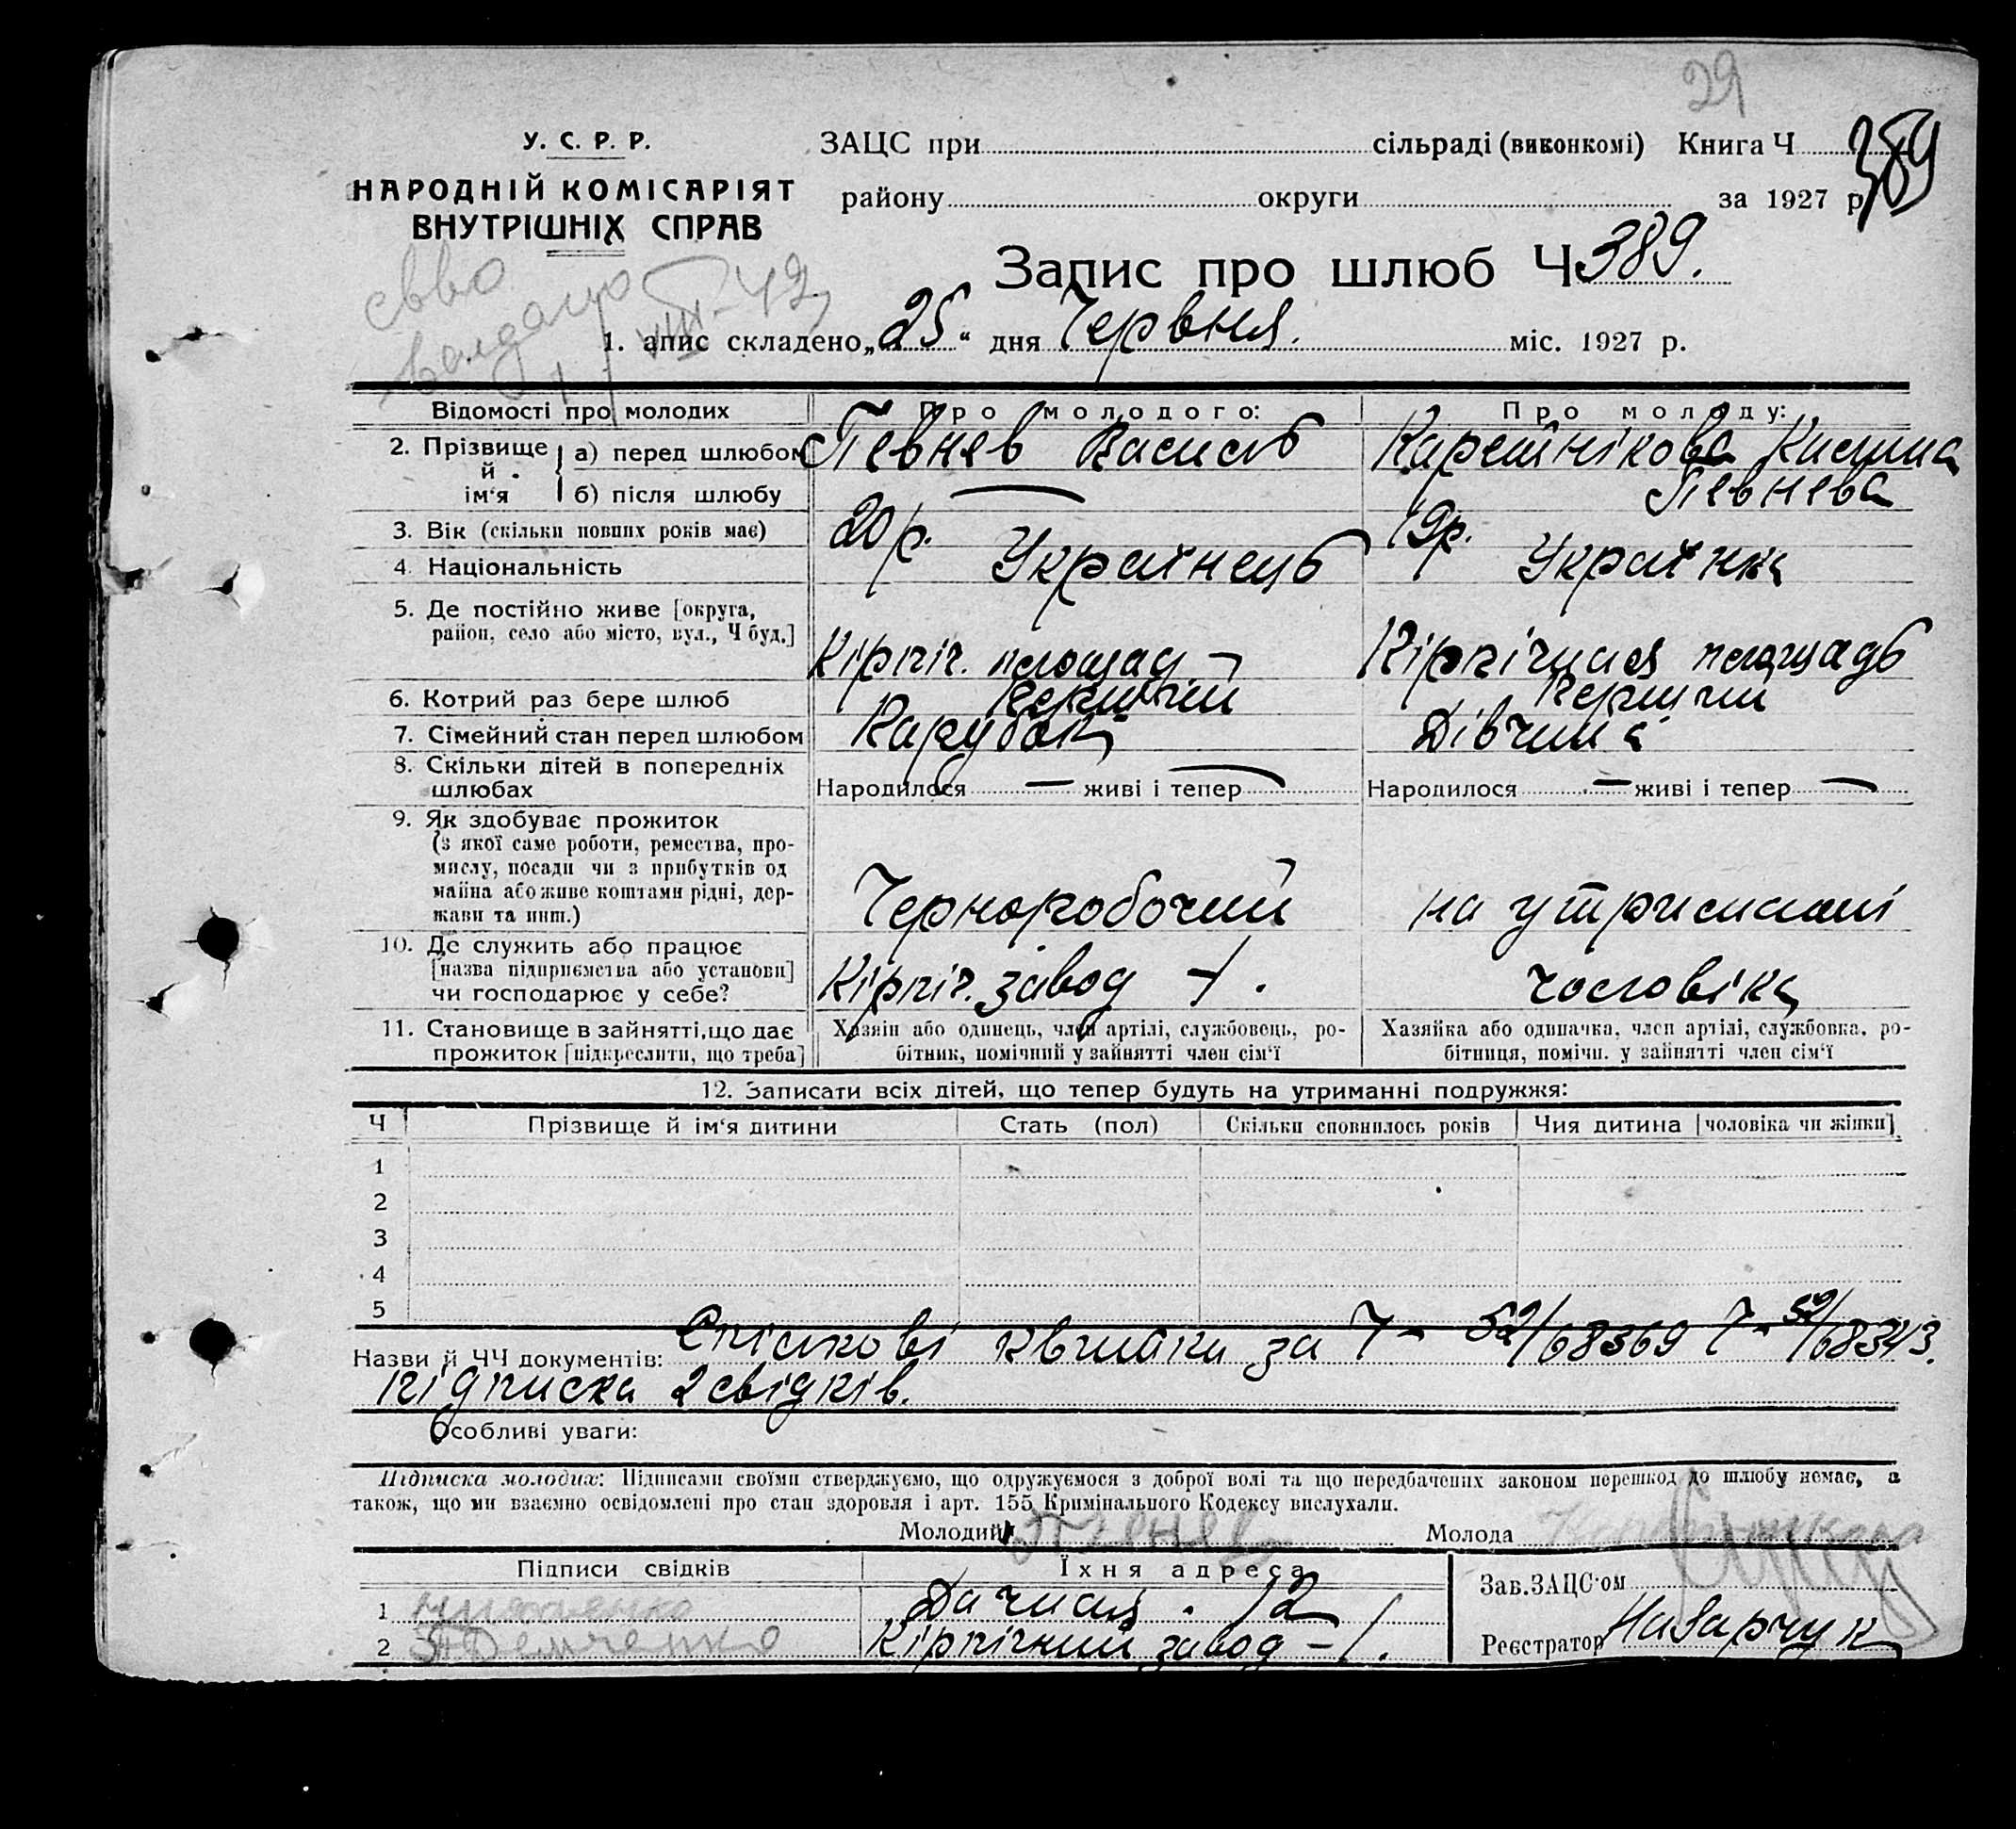 29
У. С. Р. Р.
НАРОДНІЙ КОМІСАРІЯТ
ВНУТРІШНІХ СПРАВ
ЗАЦС при сільраді (виконкомі) Книга Ч 389
району округи за 1927 р.
Запис про шлюб Ч 389.
1. апис складено „25“ дня Червня. міс. 1927 р.
Відомості про молодих
Про молодого:
Про молоду:
2. Прізвище й ім‘я
а) перед шлюбом
Певнев Василь
б) після шлюбу
Певнева
3. Вік (скільки повних років має)
20 р.
19 р.
4. Національність
Українець
Українка
5. Де постійно живе [округа,
район, село або місто, вул., Ч буд.]
Кірпіч. площад –
Кірпічная площадь
6. Котрий раз бере шлюб
Перший
Перший
7. Сімейний стан перед шлюбом
Парубок
Дівчина
8. Скільки дітей в попередніх
шлюбах
Народилося — живі і тепер —
Народилося — живі і тепер —
9. Як здобуває прожиток
(з якої саме роботи, ремества, про-
мислу, посади чи з прибутків од
майна або живе коштами рідні, дер-
жави та инш.)
Черноробочий
на утриманні
10. Де служить або працює
[назва підприємства або установи]
чи господарює у себе?
Кірпіч. завод – 1.
чоловіка
11. Становище в зайнятті, що дає
прожиток [підкреслити, що треба]
Хазяїн або одинець, член артілі, службовець, ро-
бітник, помічний у зайнятті член сім‘ї
Хазяйка або одиначка, член артілі, службовка, ро-
бітниця, помічн. у зайнятті член сім‘ї
12. Записати всіх дітей, що тепер будуть на утриманні подружжя:
Ч
Прізвище й ім‘я дитини
Стать (пол)
Скільки сповнилось років
Чия дитина [чоловіка чи жінки]
1
2
3
4
5
Назви й ЧЧ документів: Спілкові квитки за Ч – 52/68369 Ч – 52/68343.
підписка 2 свідків.
Особливі уваги:
Підписка молодих: Підписами своїми стверджуємо, що одружуємося з доброї волі та що передбачених законом перешкод до шлюбу немає, а
також, що ми взаємно освідомлені про стан здоровля і арт. 155 Кримінального Кодексу вислухали.
Молодий Певнев
Молода
Підписи свідків
Їхня адреса
Зав. ЗАЦС‘ом
1
Дачная. 12
2 Демченко
Кірпічний завод – 1.
Реєстратор Назарчук